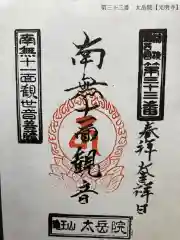 第三十三番 太岳院【光明寺】
第三十三番
奉拝
南無十一面観音
南無十一面観世音菩薩
龜王山 太岳院